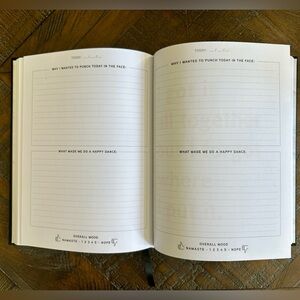 TODAY:
WHY I WANTED TO PUNCH TODAY IN THE FACE:
WHAT MADE ME DO A HAPPY DANCE:
OVERALL MOOD
NAMASTE - 1 2 3 4 5 - NOPE
TODAY:
WHY I WANTED TO PUNCH TODAY IN THE FACE:
WHAT MADE ME DO A HAPPY DANCE:
OVERALL MOOD
NAMASTE - 1 2 3 4 5 - NOPE